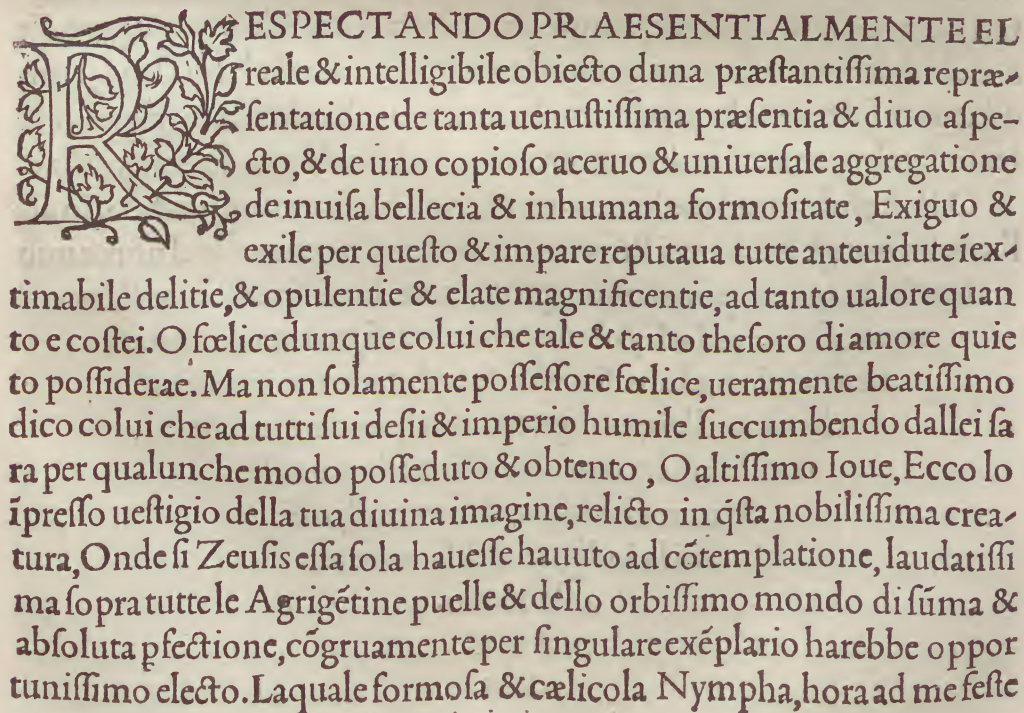 RESPECTANDO PRAESENTIALMENTE EL
reale & intelligibile obiecto duna præſtantiſſima repræ-
ſentatione de tanta uenuſtiſſima præſentia & diuo aſpe-
cto, & de uno copioſo aceruo & uniuerſale aggregatione
de inuiſa bellecia & inhumana formoſitate, Exiguo &
exile per queſto & impare reputaua tutte anteuidute iēx-
timabile delitie, & opulentie & elate magnificentie, ad tanto ualore quan
to e coſtei. O fœlice dunque colui che tale & tanto theſoro di amore quie
to poſſiderae. Ma non ſolamente poſſeſſore fœlice, ueramente beatiſſimo
dico colui che ad tutti ſui deſii & imperio humile ſuccumbendo dallei ſa
ra per qualunche modo poſſeduto & obtento, O altiſſimo Ioue, Ecco lo
īpreſſo ueſtigio della tua diuina imagine, relicto in q̃ſta nobiliſſima crea-
tura, Onde ſi Zeuſis eſſa ſola haueſſe hauuto ad cõtemplatione, laudatiſſi
ma ſopra tutte le Agrigẽtine puelle & dello orbiſſimo mondo di ſũma &
abſoluta ꝑfectione, cõgruamente per ſingulare exẽplario harebbe oppor
tuniſſimo electo. Laquale formoſa & cælicola Nympha, hora ad me feſte